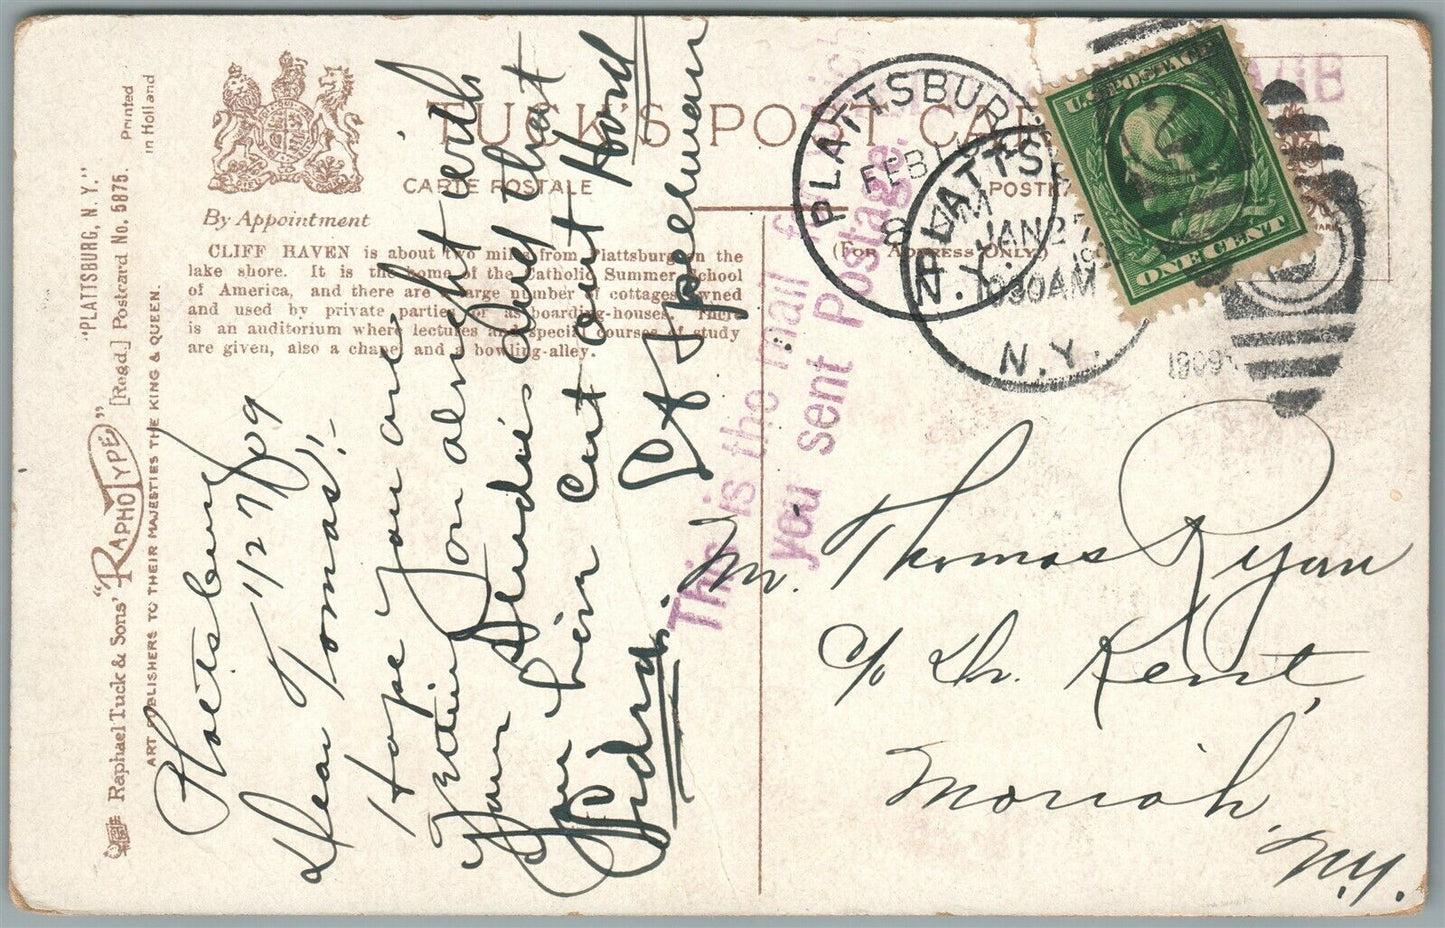 TUCK'S POST CAR
CARTE POSTALE
POSTK
By Appointment
(For Address Only)
CLIFF HAVEN is about two miles from Plattsburg on the
lake shore. It is the home of the Catholic Summer School
of America, and there are a large number of cottages owned
and used by private parties or as boarding-houses. There
is an auditorium where lectures and special courses of study
are given, also a chapel and a bowling-alley.
"PLATTSBURG, N. Y."
[Regd.] Postcard No. 5875.
Printed
in Holland
Raphael Tuck & Sons' "RAPHOTYPE"
ART PUBLISHERS TO THEIR MAJESTIES THE KING & QUEEN.
Plattsburg
1/27/09
Dear Tomas:-
Hope you are
getting on alright with
your studies and that
you
out your Hood
C A Spellman
This is the mail for which
you sent Postage.
PLATTSBURG
FEB 1
8 AM
N.Y.
PLATTSB
JAN 27
1030AM
N.Y.
1909
2
U.S. POSTAGE
ONE CENT
Mr. Thomas Ryan
c/o Dr. Kent,
Moriah,
N.Y.